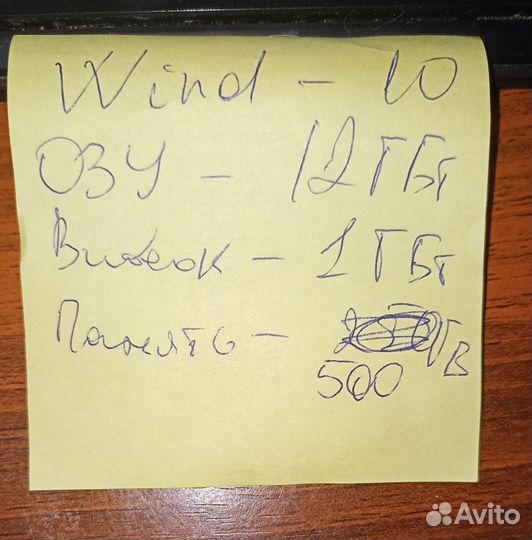 Wind - 10
ОЗУ - 12 ГБт
Видеок - 1 ГБт
Память - ГВ
500
Avito